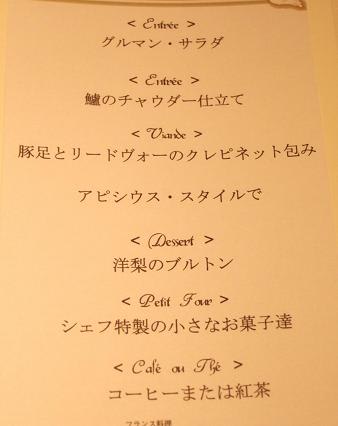 < Entrée >
グルマン・サラダ
< Entrée >
鱸のチャウダー仕立て
< Viande >
豚足とリードヴォーのクレピネット包み
アピシウス・スタイルで
< Dessert >
洋梨のブルトン
< Petit Four >
シェフ特製の小さなお菓子達
< Café ou Thé >
コーヒーまたは紅茶
フランス料理